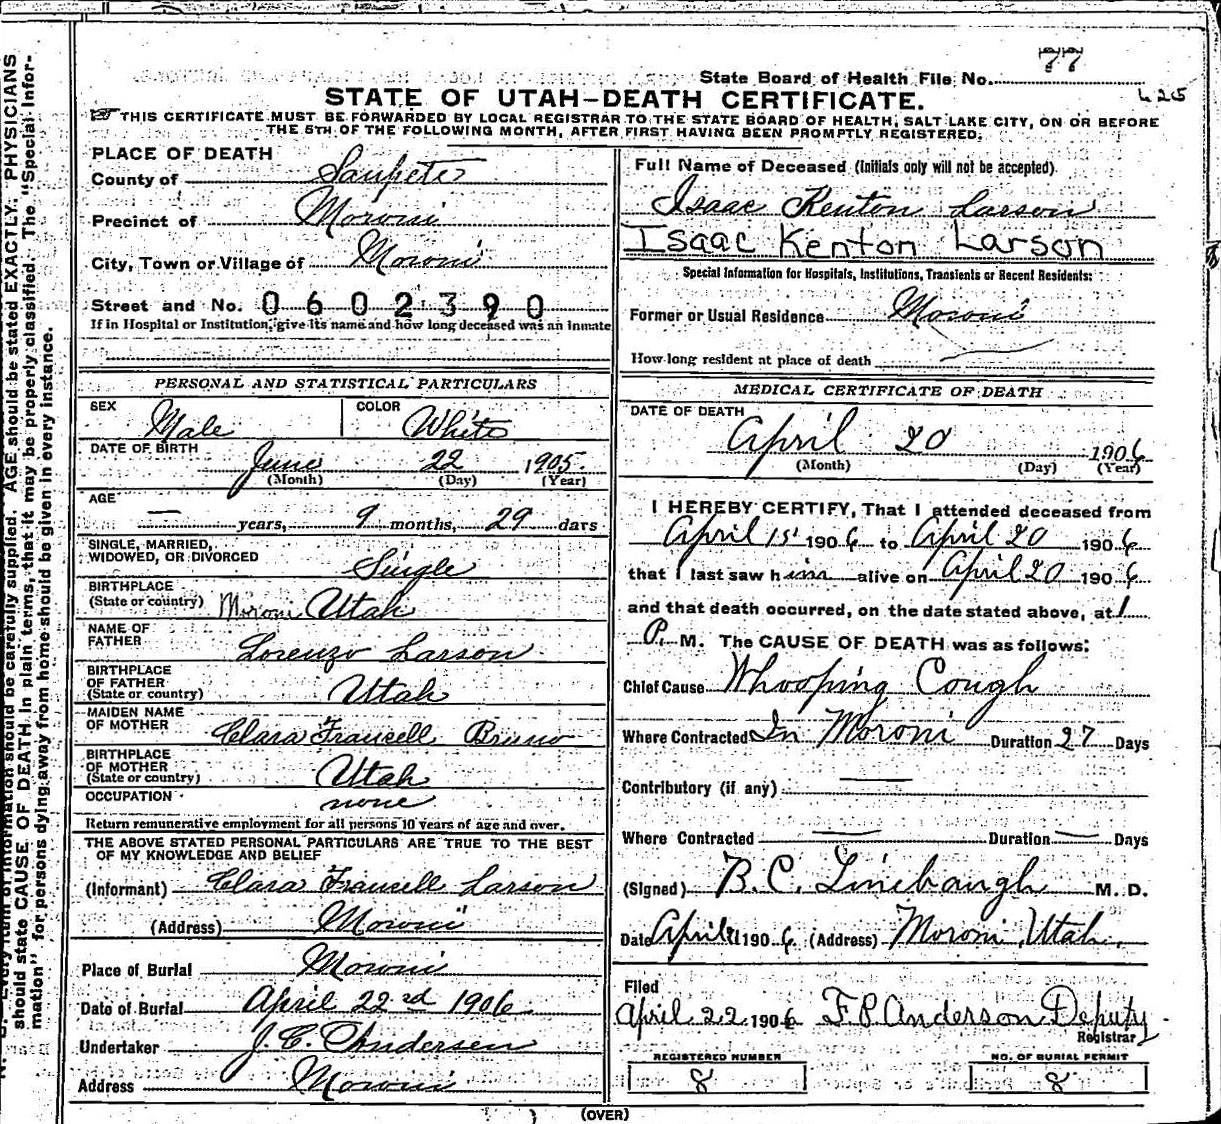 77
State Board of Health File No.
STATE OF UTAH—DEATH CERTIFICATE.
425
THIS CERTIFICATE MUST BE FORWARDED BY LOCAL REGISTRAR TO THE STATE BOARD OF HEALTH, SALT LAKE CITY, ON OR BEFORE
THE 5TH OF THE FOLLOWING MONTH, AFTER FIRST HAVING BEEN PROMPTLY REGISTERED.
PLACE OF DEATH
County of Sanpete
Precinct of Moroni
City, Town or Village of Moroni
Street and No. 0602390
If in Hospital or Institution, give its name and how long deceased was an inmate
PERSONAL AND STATISTICAL PARTICULARS
SEX Male COLOR White
DATE OF BIRTH June 22 1905.
(Month) (Day) (Year)
AGE — years, 9 months, 29 days
SINGLE, MARRIED,
WIDOWED, OR DIVORCED Single
BIRTHPLACE
(State or country) Moroni Utah
NAME OF
FATHER Lorenzo Larson
BIRTHPLACE
OF FATHER
(State or country) Utah
MAIDEN NAME
OF MOTHER Clara Francell Bruno
BIRTHPLACE
OF MOTHER
(State or country) Utah
OCCUPATION none
Return remunerative employment for all persons 10 years of age and over.
THE ABOVE STATED PERSONAL PARTICULARS ARE TRUE TO THE BEST
OF MY KNOWLEDGE AND BELIEF
(Informant) Clara Francell Larson
(Address) Moroni
Place of Burial Moroni
Date of Burial April 22nd 1906.
Undertaker J. C. Andersen
Address Moroni
Full Name of Deceased (Initials only will not be accepted)
Isaac Kenton Larson
Isaac Kenton Larson
Special Information for Hospitals, Institutions, Transients or Recent Residents:
Former or Usual Residence Moroni
How long resident at place of death
MEDICAL CERTIFICATE OF DEATH
DATE OF DEATH
April 20 1906
(Month) (Day) (Year)
I HEREBY CERTIFY, That I attended deceased from
April 1st 1906 to April 20 1906
that I last saw him alive on April 20 1906
and that death occurred, on the date stated above, at 1
P. M. The CAUSE OF DEATH was as follows:
Chief Cause Whooping Cough
Where Contracted In Moroni Duration 27 Days
Contributory (if any) —
Where Contracted — Duration — Days
(Signed) B. C. Linebaugh M. D.
Date April 1906 (Address) Moroni, Utah.
Filed
April 22 1906 F. P. Anderson Deputy
Registrar
REGISTERED NUMBER
8
NO. OF BURIAL PERMIT
8
(OVER)
Every item of information should be carefully supplied. AGE should be stated EXACTLY. PHYSICIANS
should state CAUSE OF DEATH in plain terms, that it may be properly classified. The "Special Infor-
mation" for persons dying away from home should be given in every instance.